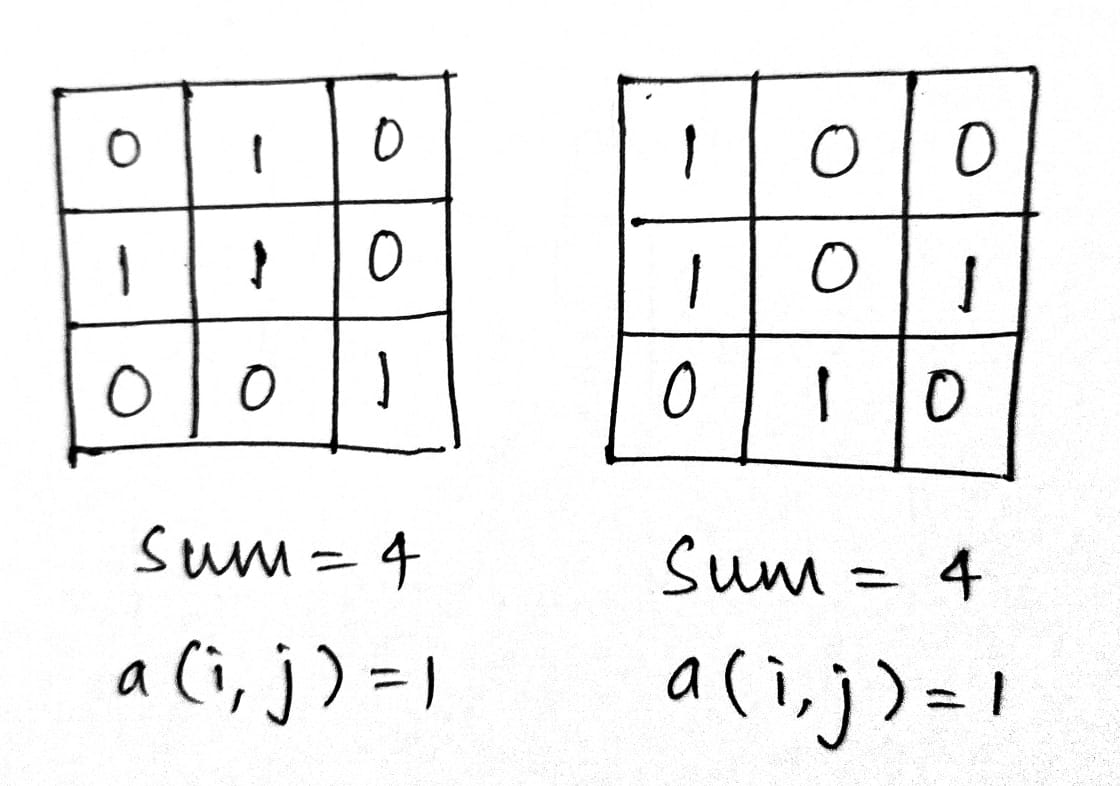 0 1 0
1 1 0
0 0 1
sum = 4
a(i,j)=1
1 0 0
1 0 1
0 1 0
sum = 4
a(i,j)=1